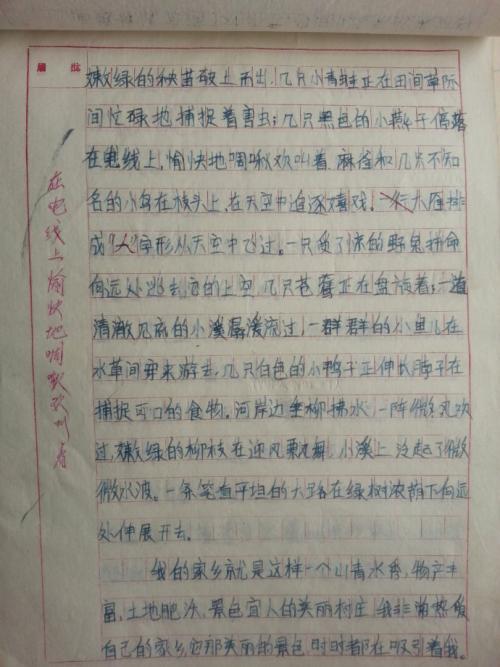 眉 批
嫩绿的秧苗破土而出,几只小青蛙正在田间草际
间忙碌地捕捉着害虫;几只黑色的小燕子停落
在电线上,愉快地啁啾欢叫着.麻雀和几只不知
名的小鸟在枝头上,在天空中追逐嬉戏.一行大雁排
成"人"字形从天空中飞过。一只受了惊的野兔拼命
向远处逃去,它的上空几只苍鹰正在盘旋着。一道
清澈见底的小溪潺潺流过,一群群的小鱼儿在
水草间穿来游去,几只白色的小鸭子正伸长脖子在
捕捉可口的食物。河岸边垂柳拂水,一阵微风吹
过,嫩绿的柳枝在迎风飘舞,小溪上泛起了微
微水波。一条笔直平坦的大路在绿树浓荫下向远
处伸展开去。
我的家乡就是这样一个山青水秀,物产丰
富,土地肥沃,景色宜人的美丽村庄.我非常热爱
自己的家乡,它那美丽的景色,时时都在吸引着我。
在电线上愉快地啁啾欢叫着